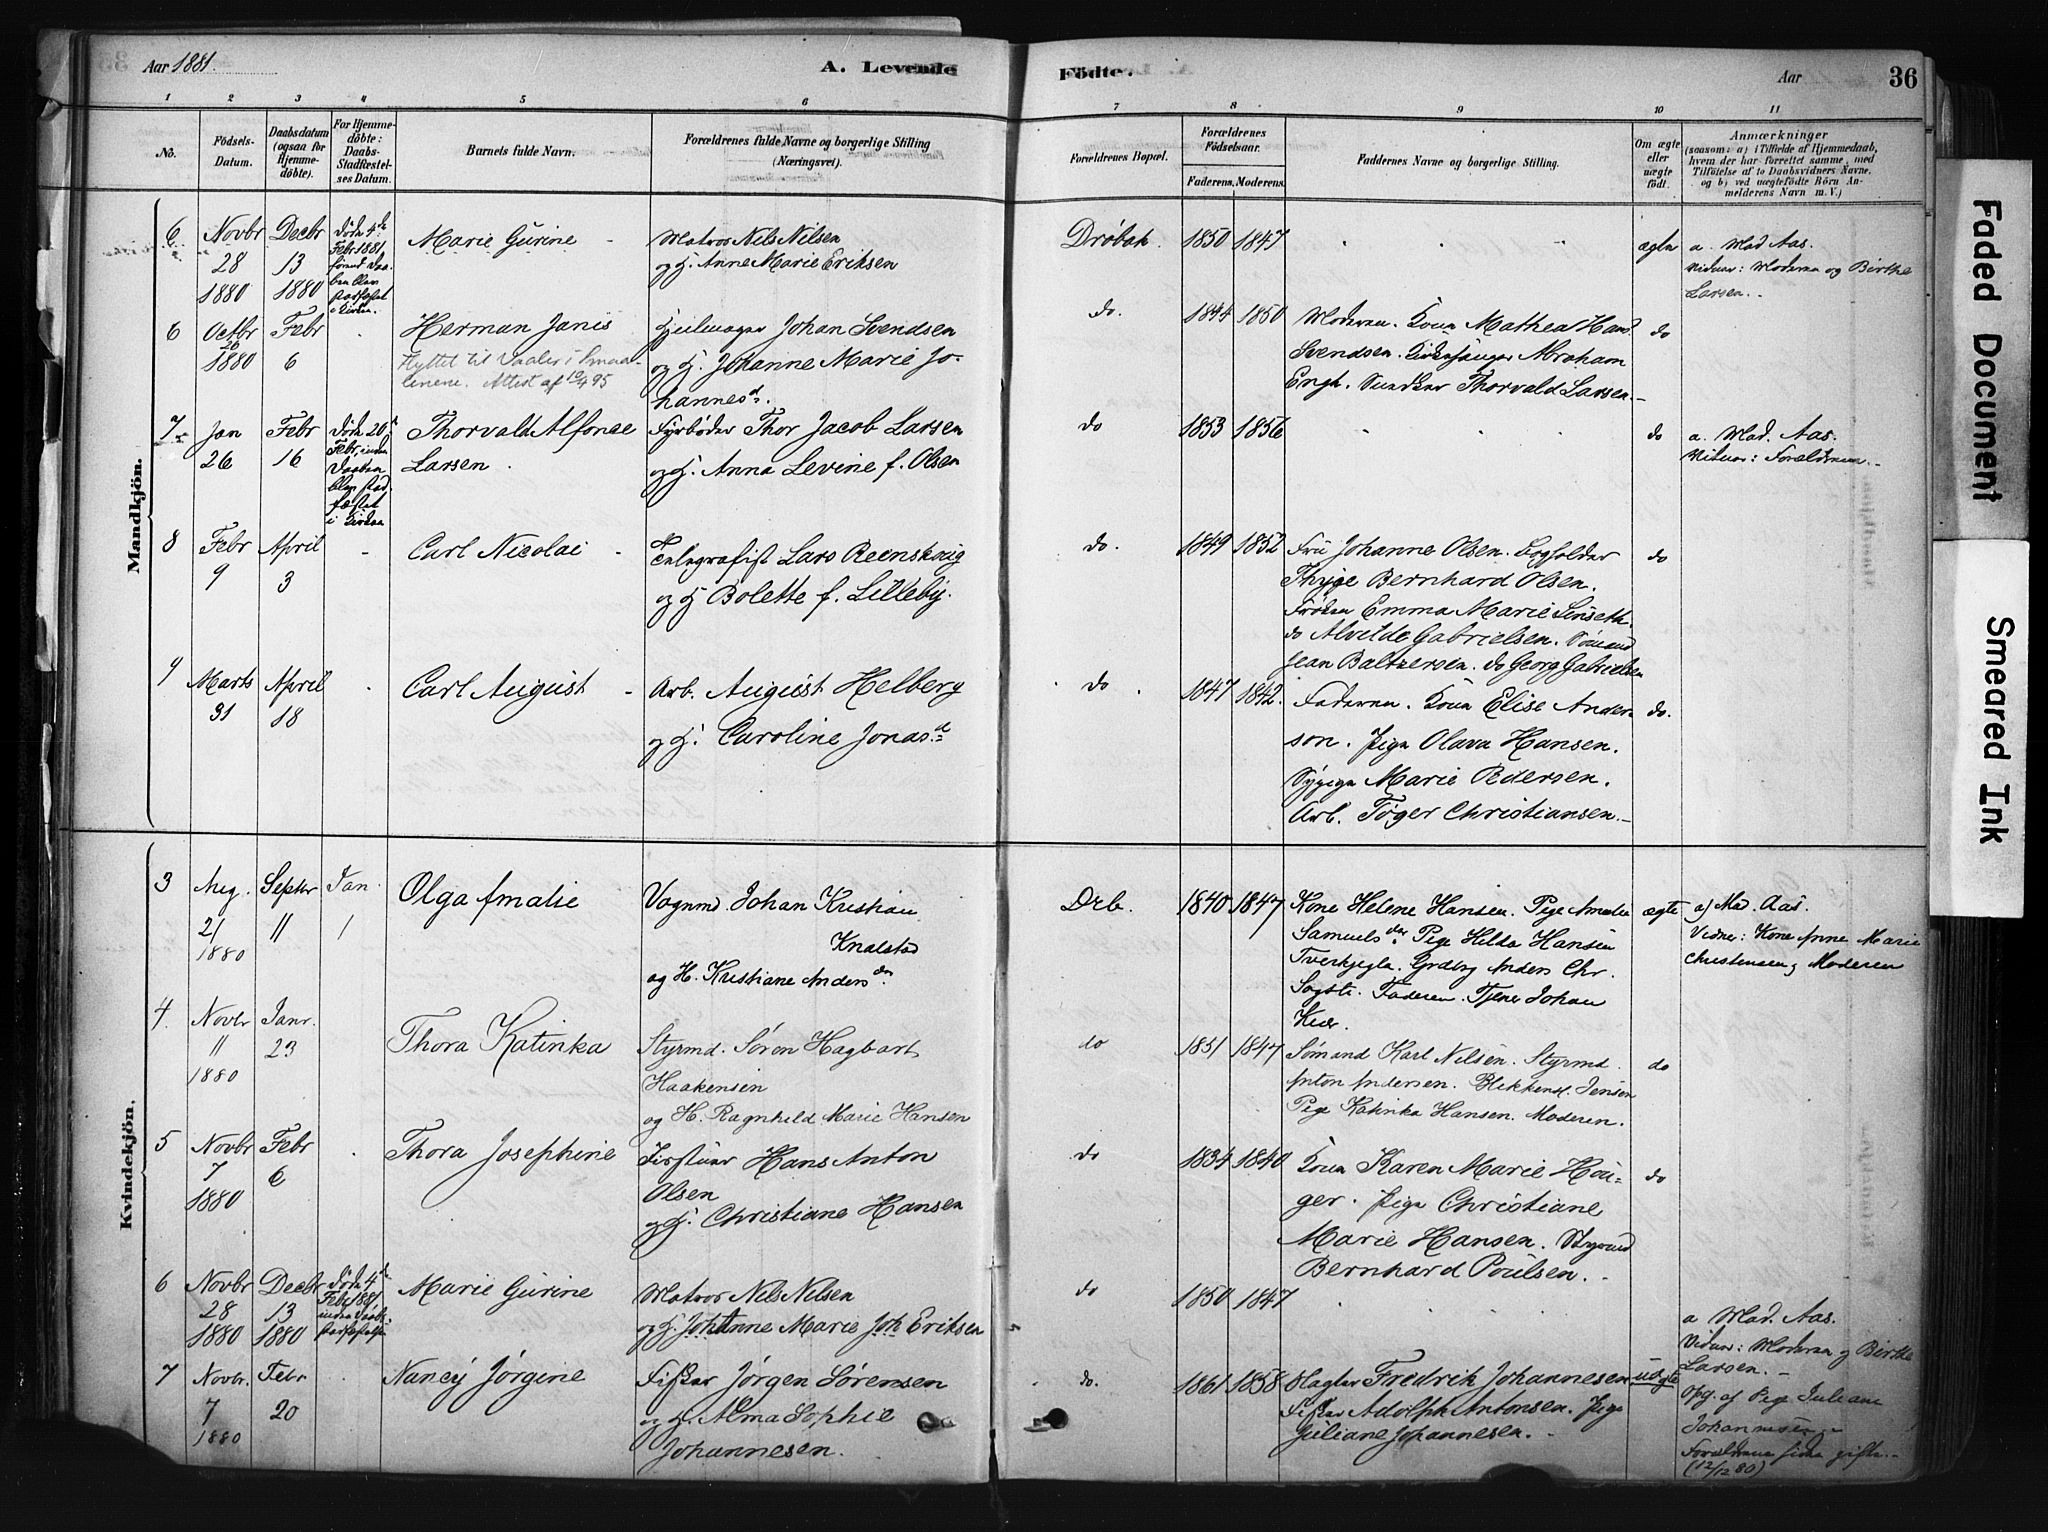 Aar 1881.
A. Levende
Födte.
Aar
36
1 2 3 4 5 6 7 8 9 10 11
No.
Födsels-
Datum.
Daabsdatum
(ogsaa for
Hjemme-
döbte).
For Hjemme-
döbte:
Daabs-
Stadfæstel-
ses Datum.
Barnets fulde Navn.
Forældrenes fulde Navne og borgerlige Stilling
(Næringsvei).
Forældrenes Bopæl.
Forældrenes
Födselsaar.
Faderens. Moderens.
Faddernes Navne og borgerlige Stilling.
Om ægte
eller
uægte
födt.
Anmærkninger
(saasom: a) i Tilfælde af Hjemmedaab,
hvem der har forrettet samme, med
Tilföielse af to Daabsvidners Navne,
og b) ved uægtefödte Börn An-
melderens Navn m. V.)
Mandkjön.
6
Novbr
28
1880
Decbr
13
1880
Døde 4de
Febr 1881
Marie Gurine
Matros Nils Nilsen
og H. Anne Marie Eriksen
Drøbak.
1850 1847
ægte
a. Mad Aas.
Vidner: Moderen og Birthe
Larsen.
6
Octbr
26
1880
Febr
6
Herman Janis
Flyttet til Vaaler i Smaa-
lenene. Attest af 10/4 95
Johan Svendsen
og H. Johanne Marie Jo-
hannesd.
do.
1844 1850
Moderen. Kone Mathea Hans
Svendsen. Kirkesanger Abraham
Engh. Snedker Thorvald Larsen.
do
7
Jan
26
Febr
16
Døde 20de
Febr, inden
Daaben
blev stad-
fæstet
i Kirken
Thorvald Alfonse
Larsen.
Fyrbøder Thor Jacob Larsen
og H. Anna Levine f. Olsen
do
1853 1856
do
a. Mad. Aas.
Vidner: Forældrene.
8
Febr
9
April
3
Carl Nicolai
Telegrafist Lars Reenskoug
og H Bolette f. Lilleby.
do.
1849 1852
Fru Johanne Olsen. Bogholder
Thyge Bernhard Olsen.
Frøken Emma Marie Linseth.
do Alvilde Gabrielsen. Sømand
Jean Baltzersen. do Georg Gabrielsen
do
9
Marts
31
April
18
Carl August
Arb. August Helberg
og H. Caroline Jonasd.
do
1847 1842.
Faderen. Kone Elise Ander-
son. Pige Olava Hansen.
Sypige Marie Pedersen.
Arb. Tøger Christiansen.
do.
Kvindekjön.
3
Aug.
21
1880
Septbr
11
Jan.
1
Olga Amalie
Vognmd. Johan Kristian
Knalstad
og H. Kristiane Andersdr.
Drb.
1840 1847
Kone Helene Hansen. Pige Amalie
Samuelsdr. Pige Hilda Hansen
Tverkjegla. Grdbrg Anders Chr.
Sogsti. Faderen. Tjener Johan
Kier.
ægte
a) Mad. Aas.
Vidner: Kone Anne Marie
Christensen og Moderen
4.
Novbr
11
1880
Janr.
23
Thora Katinka
Styrmd. Søren Hagbart
Haakensen
og H. Ragnhild Marie Hansen
do
1851 1847
Sømand Karl Nilsen. Styrmd.
Anton Andersen. Blikkensl. Jensen
Pige Katinka Hansen. Moderen.
do
5
Novbr
7
1880
Febr
6
Thora Josephine
Hans Anton
Olsen
og H. Christiane Hansen
do
1834 1840
Kone Karen Marie Hau-
ger. Pige Christiane
Marie Hansen. Styrmd
Bernhard Poulsen.
do
6
Novbr
28
1880
Decbr
13
1880
Døde 4de
Feb 1881
inden Daabs-
stadfæstelse
Marie Gurine
Matros Nils Nilsen
og H. Anne Marie Eriksen
do
1850 1847
a Mad. Aas.
Vidner: Moderen og Birthe
Larsen.
7
Novbr.
7
1880
Febr
20
Nancy Jørgine
Fisker Jørgen Sørensen
og H. Alma Sophie
Johannesen.
do.
1861 1858
Slagter Fredrik Johannesen
Fisker Adolph Antonsen. Pige
Juliane Johannesen.
uægte
Opg af Pige Juliane
Johannesen
Forældrene siden gifte.
(12/12 80)
Faded Document
Smeared Ink